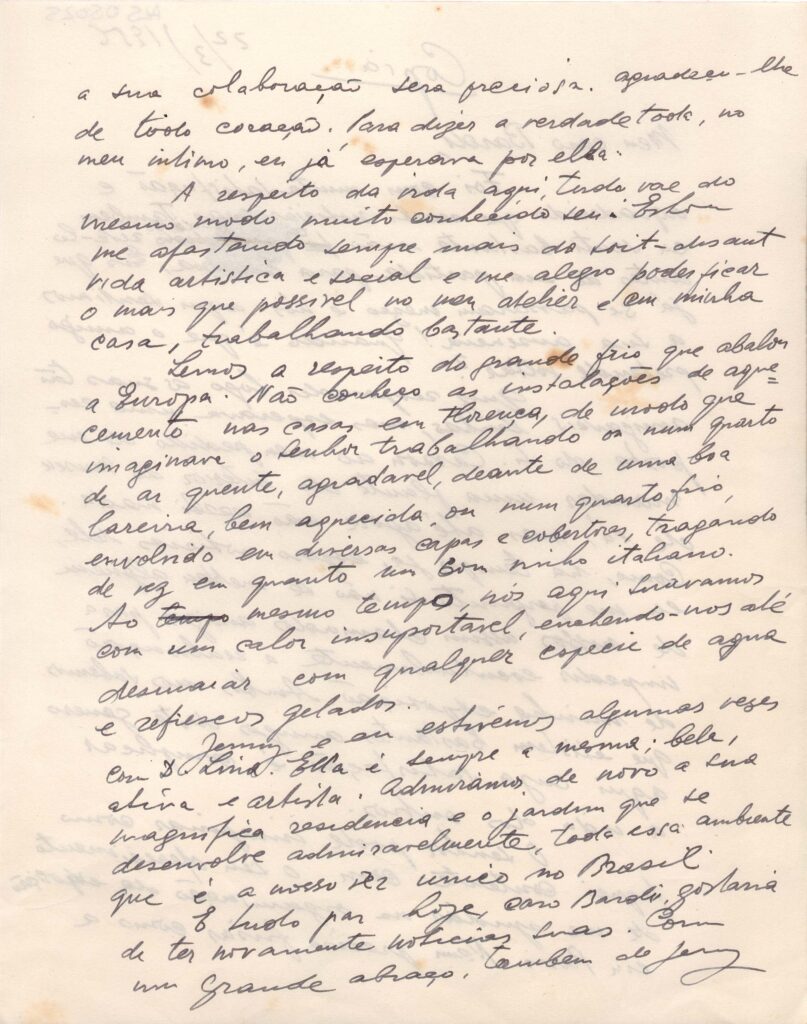 a sua colaboração sera preciosa. agradeçu-lhe
de todo coração. Para dizer a verdade toda, no
meu intimo, eu já esperava por ella.
A respeito da vida aqui, tudo vae do
mesmo modo muito conhecido seu. Estou
me afastando sempre mais da soit-disant
vida artistica e social e me alegro poder ficar
o mais que possivel no meu atelier e em minha
casa, trabalhando bastante.
Lemos a respeito do grande frio que abalou
a Europa. Não conheço as instalações de aque=
cemento nas casas em Florença, de modo que
imaginava o Senhor trabalhando ou num quarto
de ar quente, agradavel, deante de uma boa
lareira, bem aquecida, ou num quarto frio,
envolvido em diversas capas e cobertores, tragando
de vez em quanto um bom vinho italiano.
Ao tempo mesmo tempo, nós aqui suavamos
com um calor insuportavel, enchendo-nos até
desmaiar com qualquer especie de agua
e refrescos gelados.
Jenny e eu estivemos algumas vezes
com D. Lina. Ella é sempre a mesma; bela,
ativa e artista. Admiramos de novo a sua
magnifica residencia e o jardim que se
desenvolve admiravelmente, todo esse ambiente
que é a nosso ver unico no Brasil
E tudo par hoje, caro Bardi, gostaria
de ter novamente noticias suas. Com
um grande abraço, tambem de Jenny